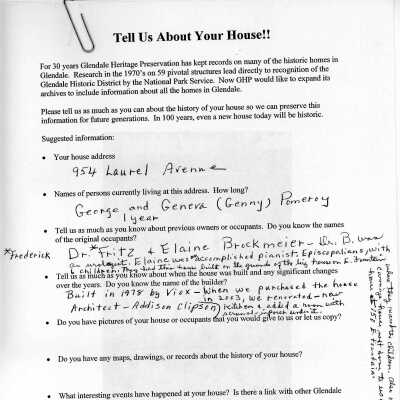 Tell Us About Your House!!
For 30 years Glendale Heritage Preservation has kept records on many of the historic homes in
Glendale. Research in the 1970's on 59 pivotal structures lead directly to recognition of the
Glendale Historic District by the National Park Service. Now GHP would like to expand its
archives to include information about all the homes in Glendale.
Please tell us as much as you can about the history of your house so we can preserve this
information for future generations. In 100 years, even a new house today will be historic.
Suggested information:
• Your house address
954 Laurel Avenue
• Names of persons currently living at this address. How long?
George and Geneva (Genny) Pomeroy
1 year
• Tell us as much as you know about previous owners or occupants. Do you know the names
of the original occupants?
*Frederick
Dr. *Fritz & Elaine Brockmeier - Dr. B. was
an Elaine was accomplished pianist. Episcopalians, with
children. They had this house built on the grounds of the big house on E. Fountain
• Tell us as much as you know about when the house was built and any significant changes
over the years. Do you know the name of the builder?
Built in 1978 by Viox - When we purchased the house
in 2003, we renovated - new
Architect - Addison Clipson kitchen & added a room with
• Do you have pictures of your house or occupants that you would give to us or let us copy?
• Do you have any maps, drawings, or records about the history of your house?
• What interesting events have happened at your house? Is there a link with other Glendale